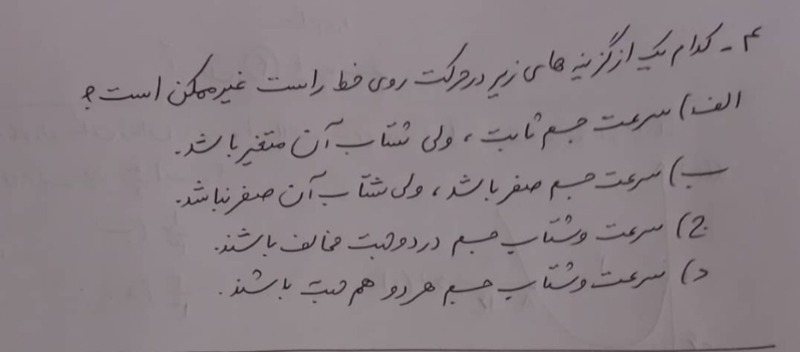 ۴ - کدام یک از گزینه های زیر در حرکت روی خط راست غیرممکن است؟
الف) سرعت جسم ثابت ، ولی شتاب آن متغیر باشد.
ب) سرعت جسم صفر باشد ، ولی شتاب آن صفر نباشد.
ج) سرعت و شتاب جسم در دو جهت مخالف باشند.
د) سرعت و شتاب جسم هر دو هم جهت باشند.